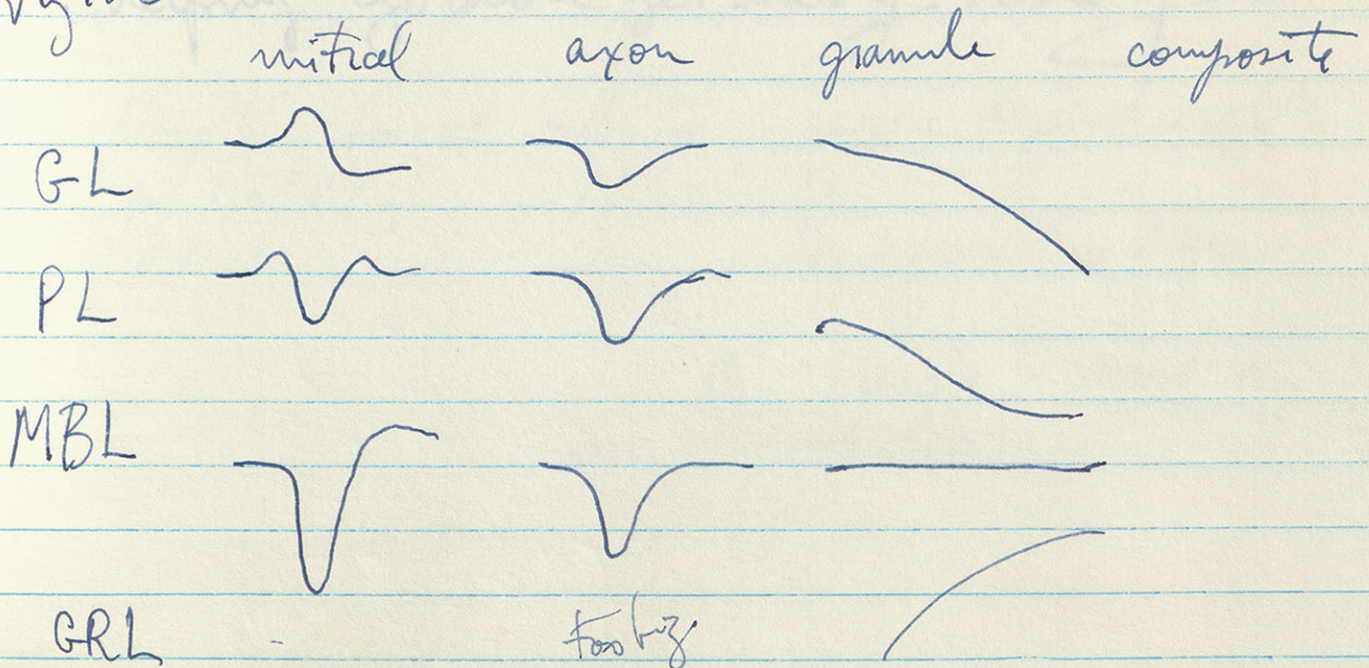 mitral axon granule composite
GL
PL
MBL
GRL - Too big